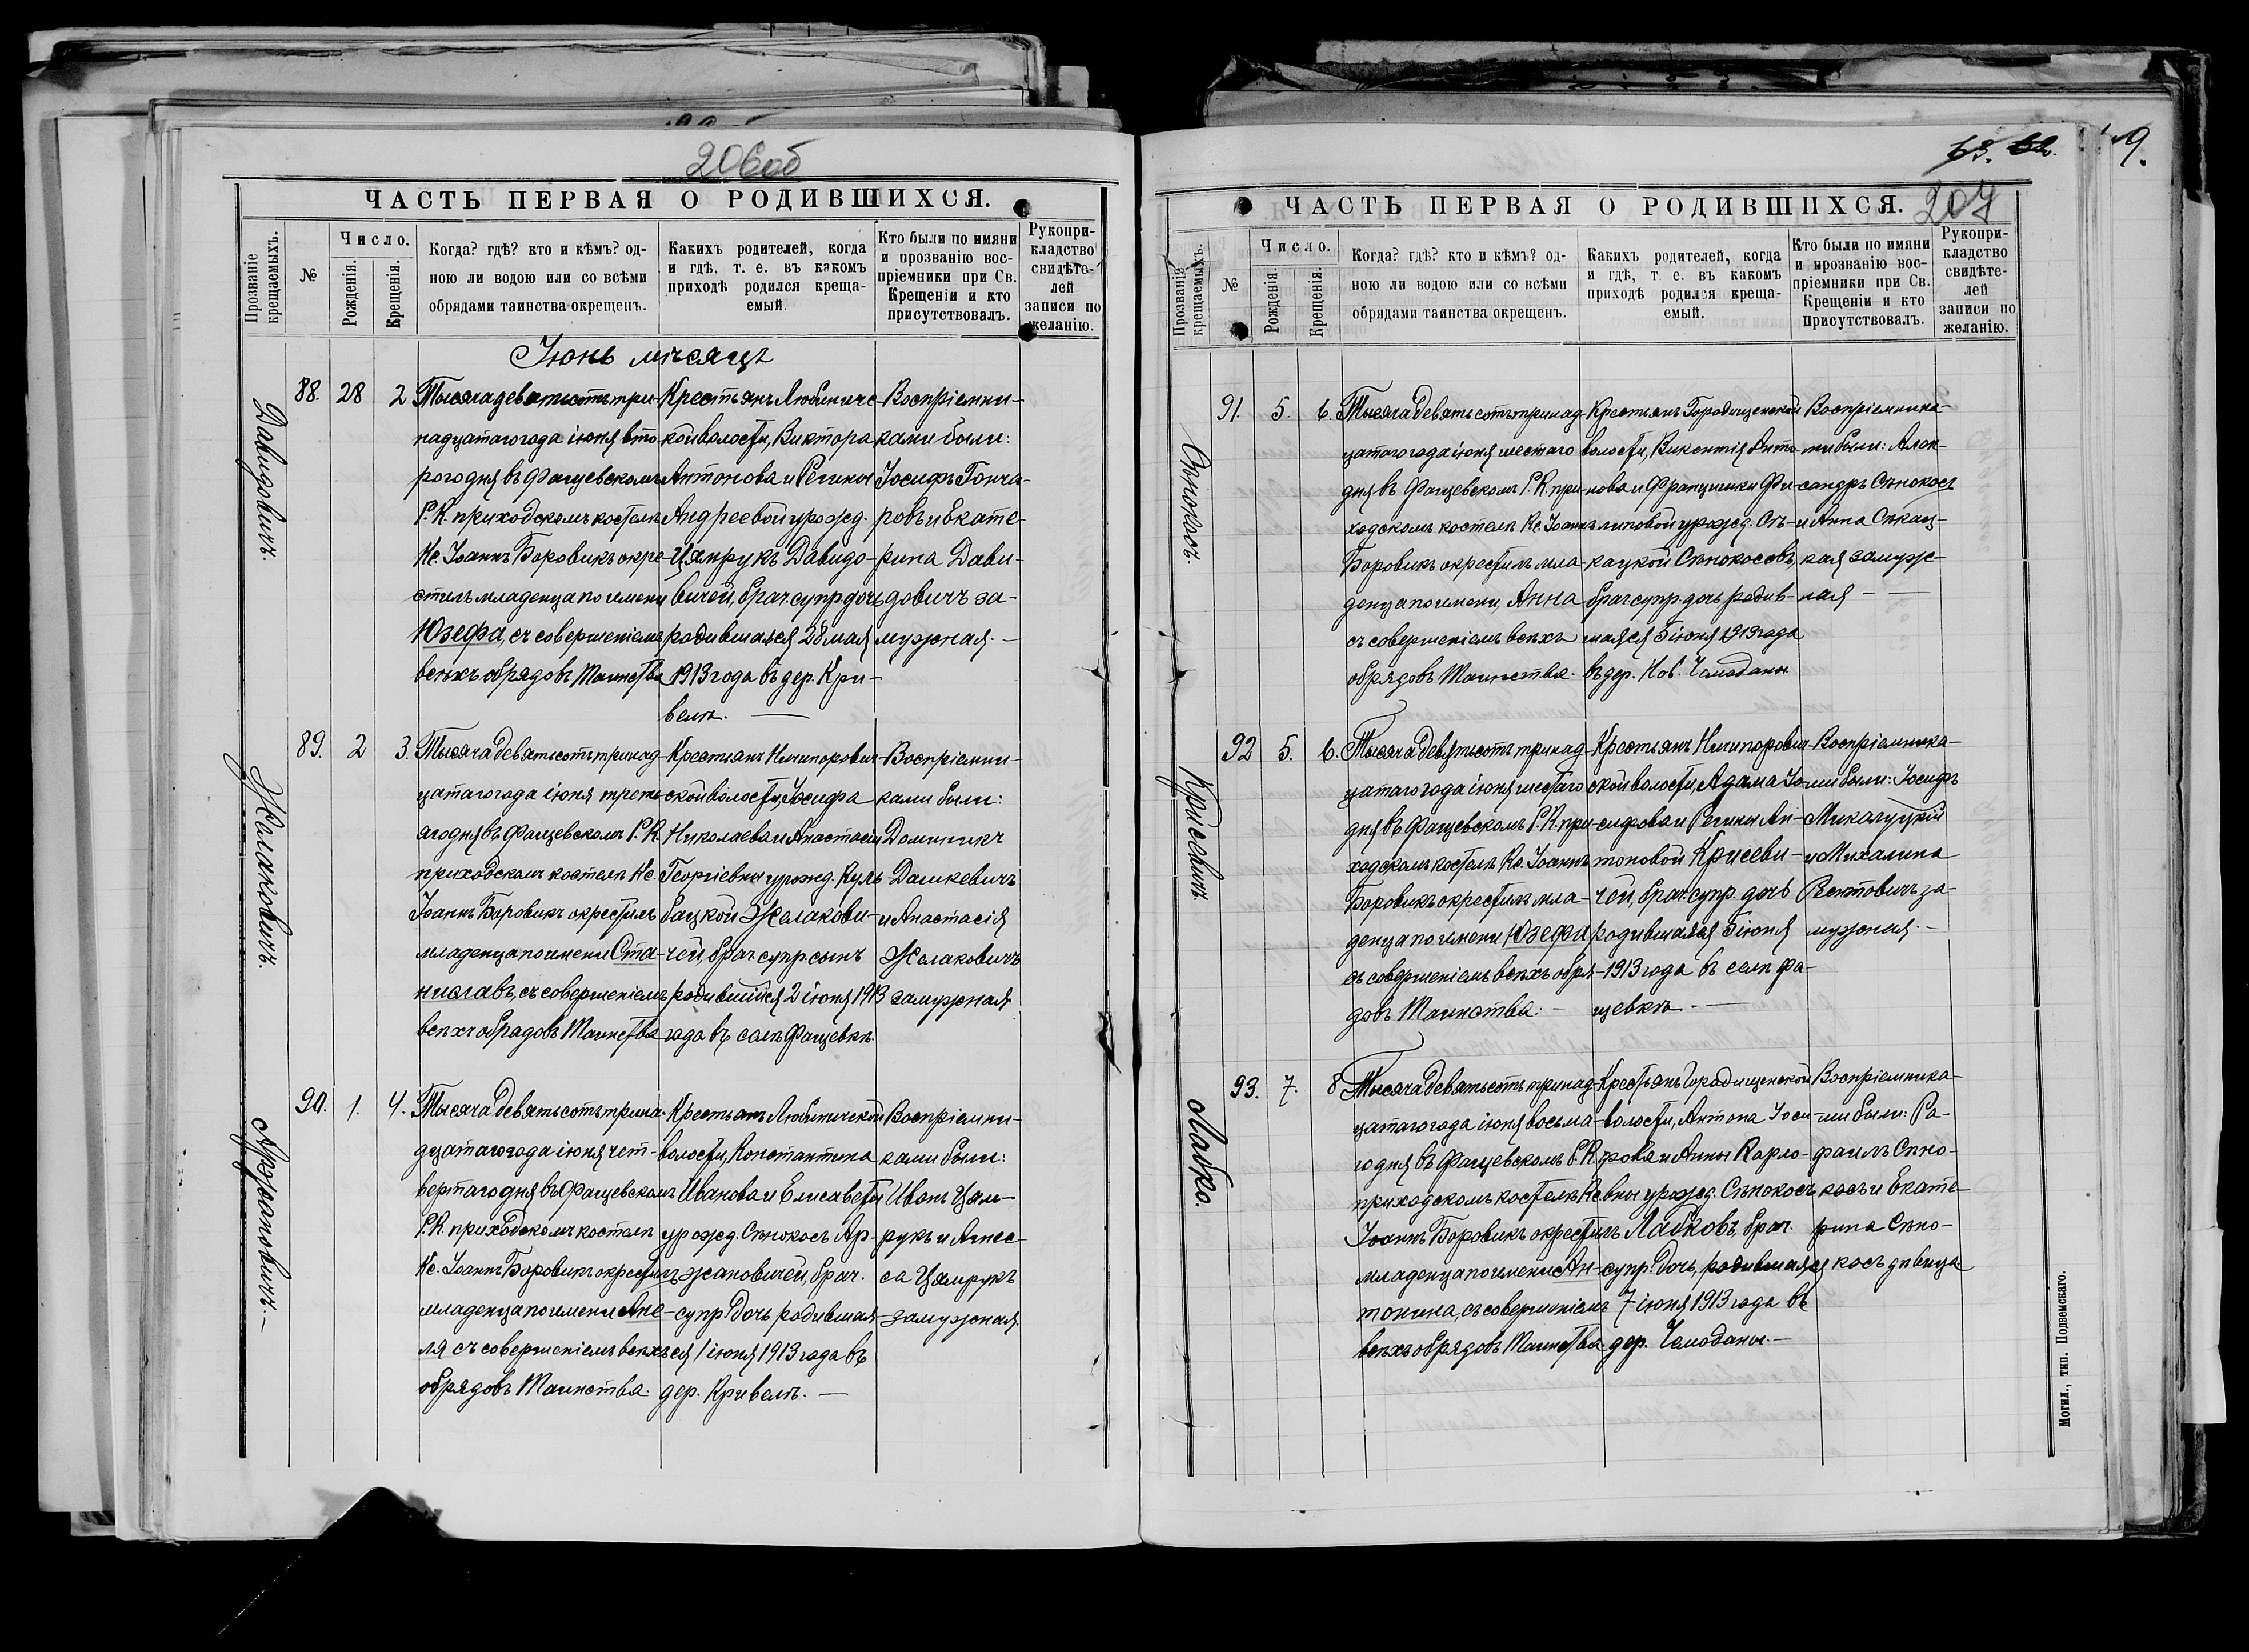 206об
ЧАСТЬ ПЕРВАЯ О РОДИВШИХСЯ.
Прозваніе крещаемыхъ.
№
Число.
Рожденія.
Крещенія.
Когда? гдѣ? кто и кѣмъ? од-
ною ли водою или со всѣми
обрядами таинства окрещенъ.
Какихъ родителей, когда
и гдѣ, т. е. въ какомъ
приходѣ родился креща-
емый.
Кто были по имяни
и прозванію вос-
пріемники при Св.
Крещеніи и кто
присутствовалъ.
Рукопри-
кладство
свидѣте-
лей
записи по
желанію.
Іюнь мѣсяцъ
Давидовичъ.
88. 28 2
Тысяча девятьсотъ три-
надцатаго года іюня вто-
рого дня въ Фащевскомъ
Р.К. приходскомъ костелѣ
Кс. Іоаннъ Боровикъ окре-
стилъ младенца по имени
Юзефа, съ совершеніемъ
всѣхъ обрядовъ Таинства
Крестьянъ Любиничс-
кой волости, Виктора
Антонова и Регины
Андреевой урожд.
Цямрукъ Давидо-
вичей, брач. супр. дочь
родившаяся 28 мая
1913 года въ дер. Кри-
велѣ. —
Воспріемни-
ками были:
Іосифъ Гонча-
ровъ и Екате-
рина Дави-
довичъ за-
мужная. —
Желаковичъ.
89. 2 3.
Тысяча девятьсотъ тринад-
цатаго года іюня треть-
яго дня въ Фащевскомъ Р.К.
приходскомъ костелѣ Кс.
Іоаннъ Боровикъ окрестилъ
младенца по имени Ста-
ниславъ, съ совершеніемъ
всѣхъ обрядовъ Таинства
Крестьянъ Ничипорович-
ской волости, Іосифа
Николаева и Анастасіи
Георгіевны урожд. Куль-
бацкой Желакови-
чей, брач. супр. сынъ
родившійся 2 іюня 1913
года въ селѣ Фащевкѣ.
Воспріемни-
ками были:
Доминикъ
Дашкевичъ
и Анастасія
Желаковичъ
замужная
Аржановичъ. —
90. 1. 4.
Тысяча девятьсотъ трина-
дцатаго года іюня чет-
вертаго дня въ Фащевскомъ
Р.К. приходскомъ костелѣ
Кс. Іоаннъ Боровикъ окрестилъ
младенца по имени Ане-
ля съ совершеніемъ всѣхъ
обрядовъ Таинства.
Крестьянъ Любиничской
волости, Константина
Иванова и Елисаветы
урожд. Сѣнокосъ Ар-
жановичей, брач.
супр. дочь родившая-
ся 1 іюня 1913 года въ
дер. Кривелѣ. —
Воспріемни-
ками были:
Иванъ Цям-
рукъ и Агнес-
са Цямрукъ
замужная.
63. 62.
9.
207
ЧАСТЬ ПЕРВАЯ О РОДИВШИХСЯ.
Прозванія крещаемыхъ.
№
Число.
Рожденія.
Крещенія.
Когда? гдѣ? кто и кѣмъ? од-
ною ли водою или со всѣми
обрядами таинства окрещенъ.
Какихъ родителей, когда
и гдѣ, т. е. въ какомъ
приходѣ родился креща-
емый.
Кто были по имяни
и прозванію вос-
пріемники при Св.
Крещеніи и кто
присутствовалъ.
Рукопри-
кладство
свидѣте-
лей
записи по
желанію.
Сѣнокосъ.
91. 5. 6.
Тысяча девятьсотъ тринад-
цатаго года іюня шестаго
дня въ Фащевскомъ Р.К. при-
ходскомъ костелѣ Кс. Іоаннъ
Боровикъ окрестилъ мла-
денца по имени, Анна
съ совершеніемъ всѣхъ
обрядовъ Таинства.
Крестьянъ Городищенской
волости, Викентія Анто-
нова и Францишки Фи-
липовой урожд. Сѣ-
кацкой Сѣнокосовъ,
брач. супр. дочь родив-
шаяся 5 іюня 1913 года
въ дер. Нов. Чемоданы
Воспріемника-
ми были: Алек-
сандръ Сѣнокосъ
и Анна Сѣкац-
кая замуж-
ная —
Крисевичъ.
92 5. 6.
Тысяча девятьсотъ тринад-
цатаго года іюня шестаго
дня въ Фащевскомъ Р.К. при-
ходскомъ костелѣ Кс. Іоаннъ
Боровикъ окрестилъ мла-
денца по имени Юзефа
съ совершеніемъ всѣхъ обря-
довъ Таинства. —
Крестьянъ Ничипорович-
ской волости, Адама Іо-
сифова и Регины Ан-
тоновой Крисеви-
чей, брач. супр. дочь
родившаяся 5 іюня
1913 года въ селѣ Фа-
щевкѣ. —
Воспріемника-
ми были: Іосифъ
Микагуцкій
и Михалина
Вентовичъ за-
мужная. —
Лабко.
93. 7. 8
Тысяча девятьсотъ тринад-
цатаго года іюня восьма-
го дня въ Фащевскомъ Р.К.
приходскомъ костелѣ Кс
Іоаннъ Боровикъ окрестилъ
младенца по имени Ан-
тонина, съ совершеніемъ
всѣхъ обрядовъ Таинства
Крестьянъ Городищенской
волости, Антона Іоси-
фова и Анны Карло-
вны урожд. Сѣнокосъ
Лабковъ, брач.
супр. дочь, родившаяся
7 іюня 1913 года въ
дер. Чемоданы. —
Воспріемника-
ми были: Ра-
фаилъ Сѣно-
косъ и Екате-
рина Сѣно-
косъ дѣвица
Могил., тип. Подземскаго.